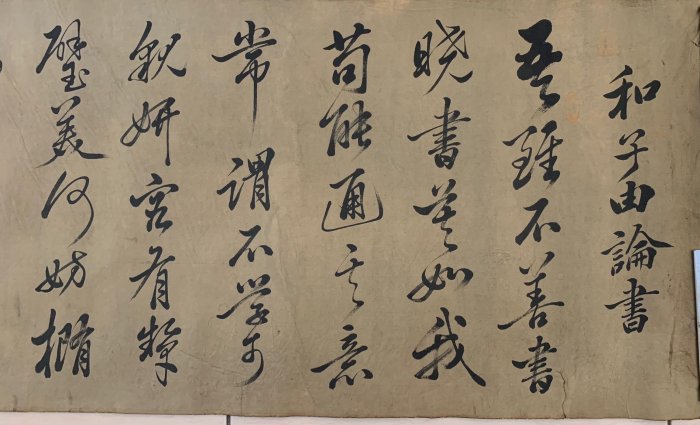 和子由論書
吾雖不善書
曉書莫如我
苟能通其意
常謂不學可
貌妍容有顰
璧美何妨橢